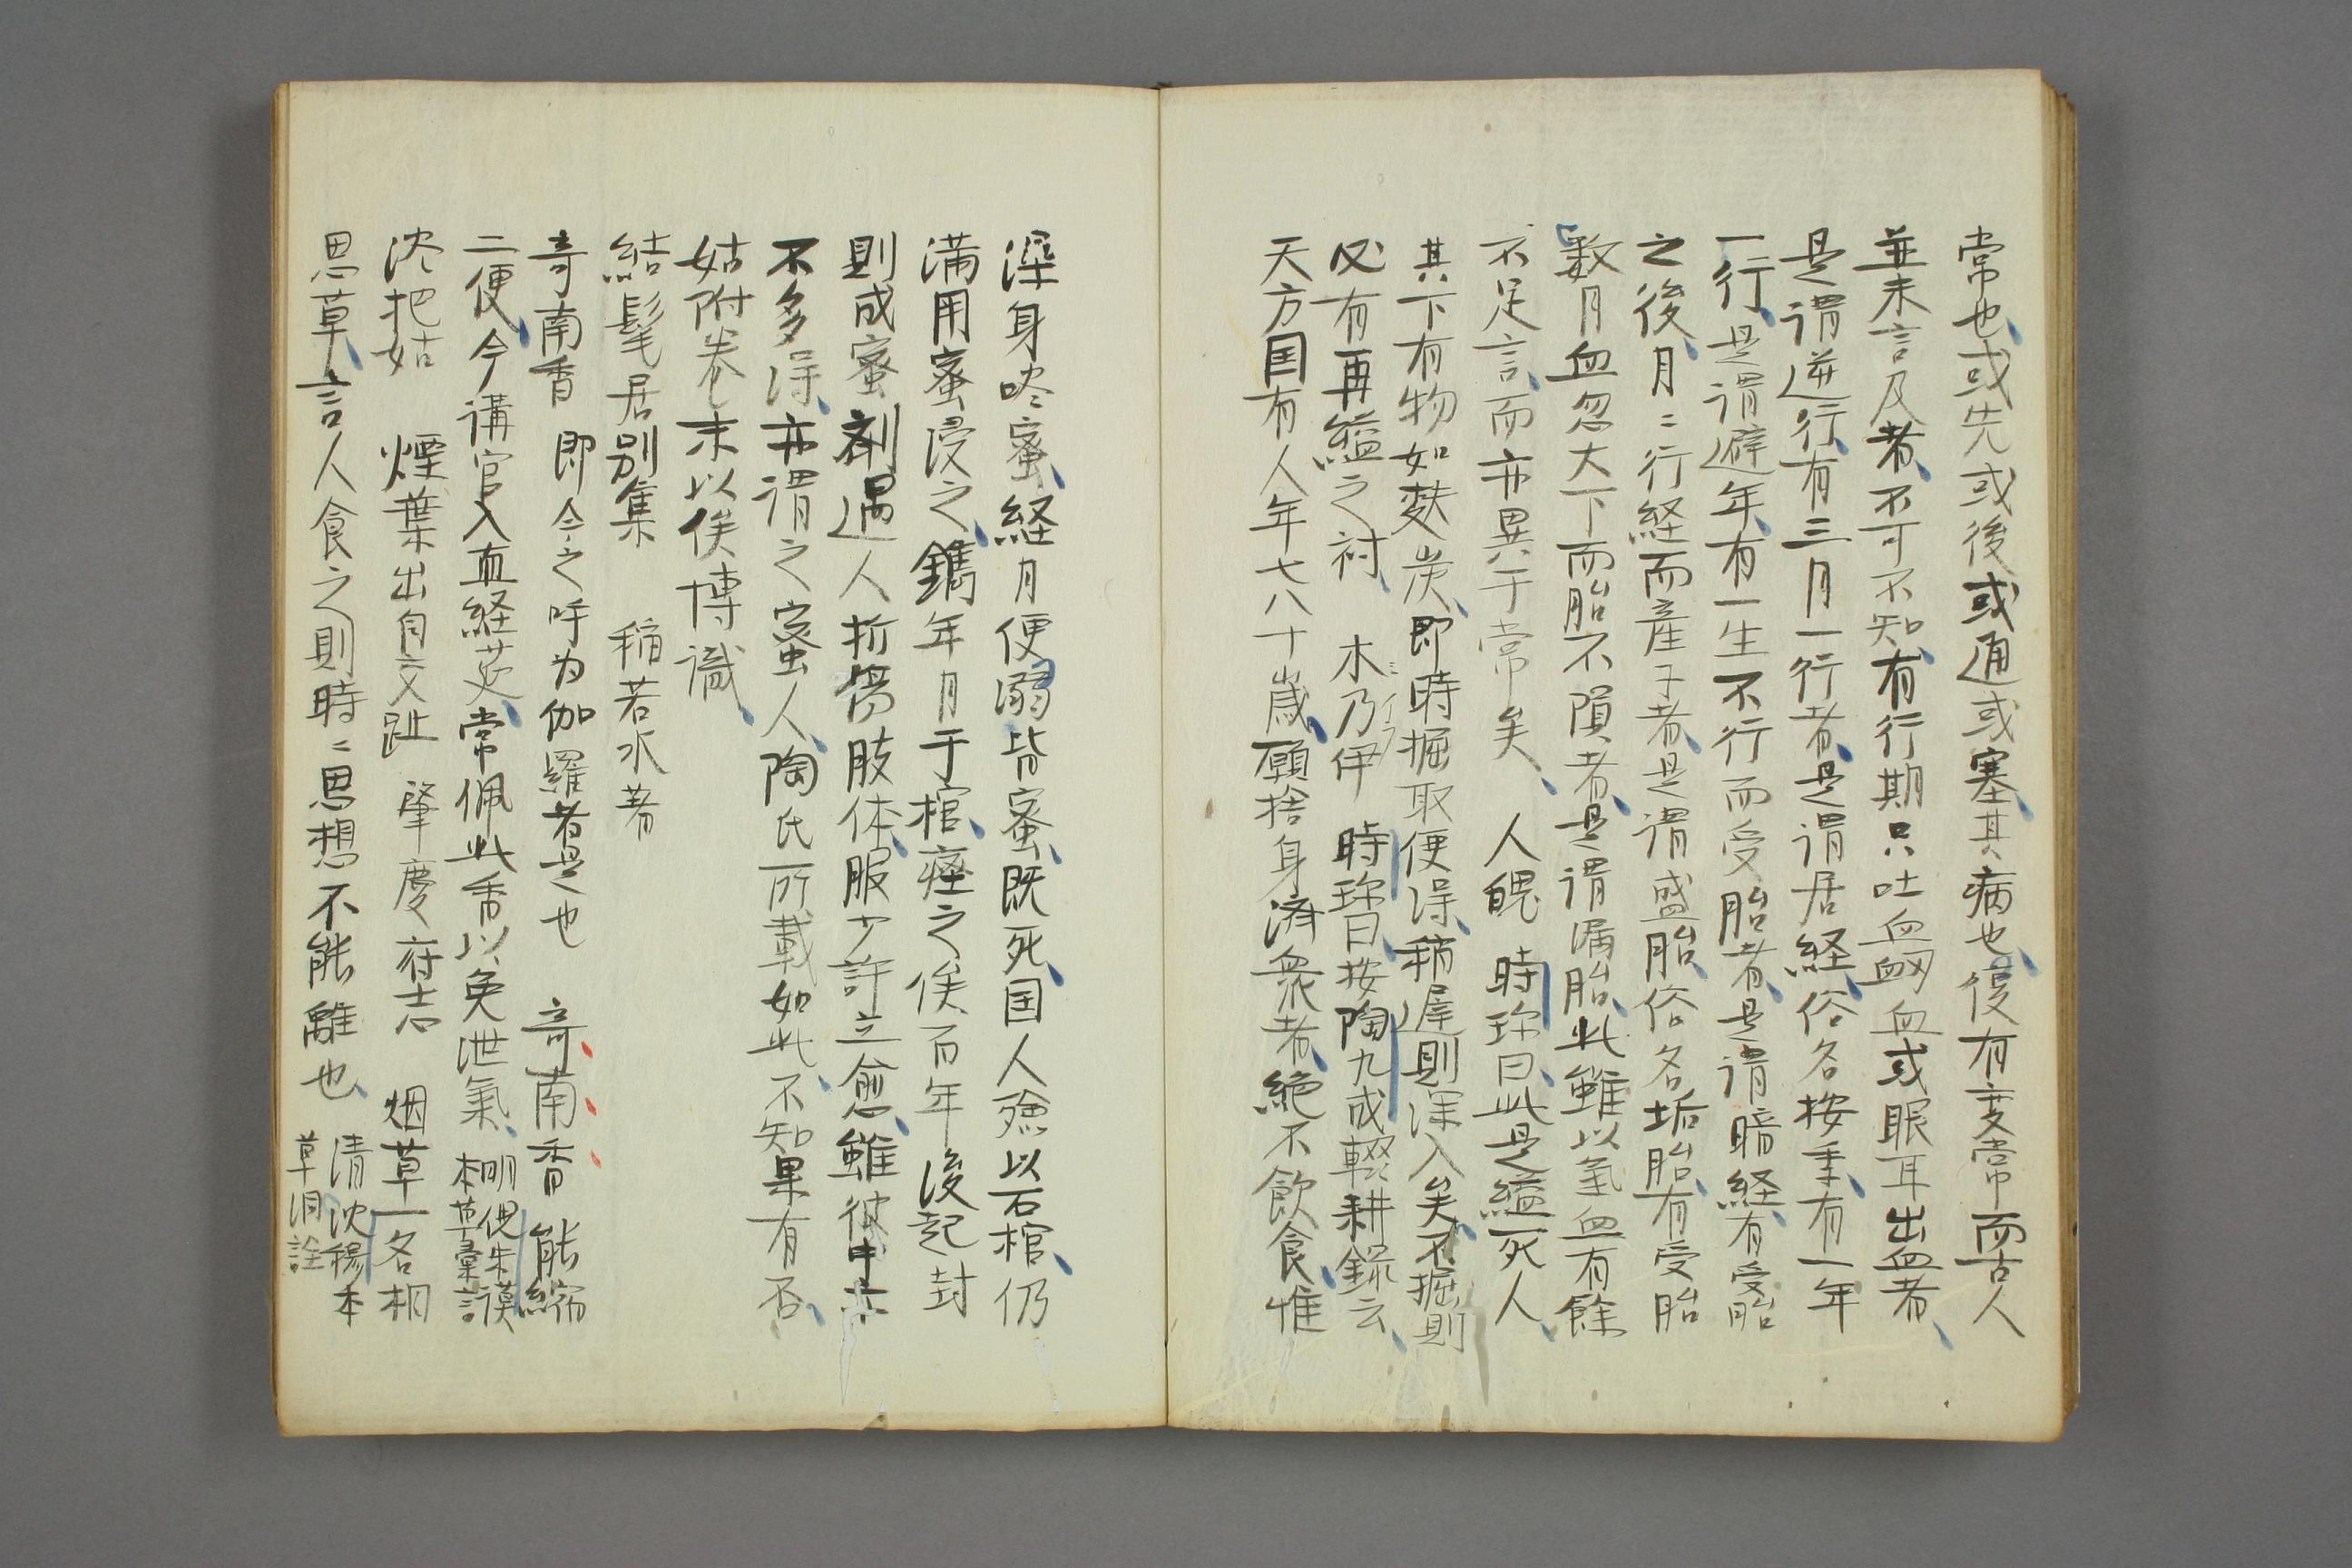 常也、或先或後或通或塞、其病也、復有変常而古人
並未言及者、不可不知、有行期只吐血衄血或眼耳出血者、
是謂逆行、有三月一行者、是謂居経、俗名按季、有一年
一行、是謂避年、有一生不行而受胎者、是謂暗経、有受胎
之後、月〻行経而産子者、是謂盛胎、俗名垢胎、有受胎
数月血忽大下而胎不隕者、是謂漏胎、此雖以氣血有餘
不足言、而亦異于常矣、 人魄 時珍曰、此是縊死人、
其下有物如麩炭、即時掘取便得、稍遅則深入矣、不掘則
必有再縊之禍、 木乃伊 ミイラ 時珍曰、按陶九成輟耕錄云、
天方国有人年七八十歳、願捨身済衆者、絶不飲食、惟
澡身啖蜜、経月便溺皆蜜、既死、国人殮以石棺、仍
満用蜜浸之、鐫年月于棺、瘞之俟百年後起封
則成蜜剤、遇人折傷肢体、服少許立愈、雖彼中亦
不多得、亦謂之蜜人、陶氏所載如此、不知果有否、
姑附巻末以俟博識、
結髦居別集 稲若水著
奇南香 即今之呼为伽羅者是也 奇南香 能縮
二便、今講官入直経筵、常佩此香以免泄氣、明倪朱謨本草彙言
沈把姑 煙葉出自交趾 肇慶府志 烟草一名相
思草、言人食之則時〻思想不能離也、清沈穆本草洞詮